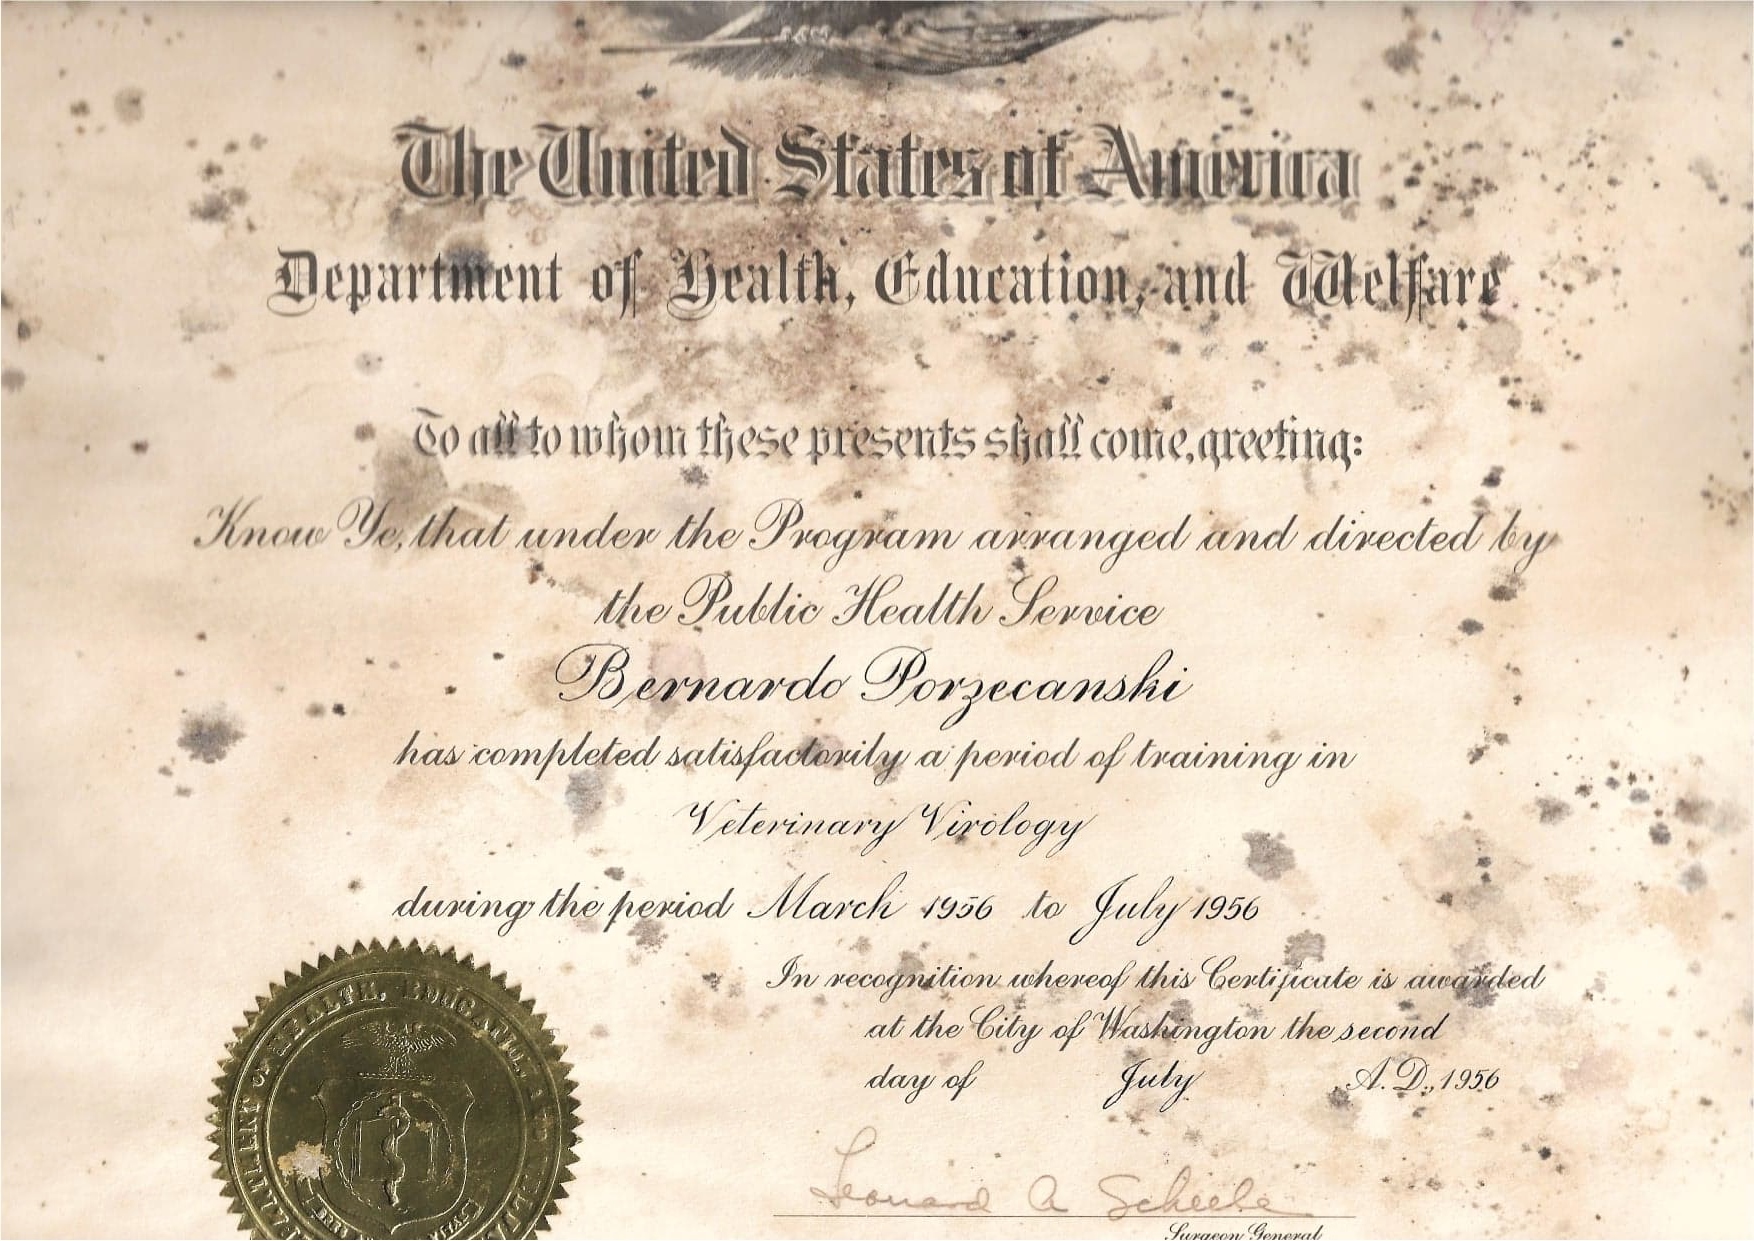 The United States of America
Department of Health, Education, and Welfare
To all to whom these presents shall come, greeting:
Know Ye, that under the Program arranged and directed by
the Public Health Service
Bernardo Porzecanski
has completed satisfactorily a period of training in
Veterinary Virology
during the period March 1956 to July 1956
In recognition whereof this Certificate is awarded
at the City of Washington the second
day of July A. D., 1956
Leonard A Scheele
Surgeon General
OF HEALTH, EDUCATION, AND